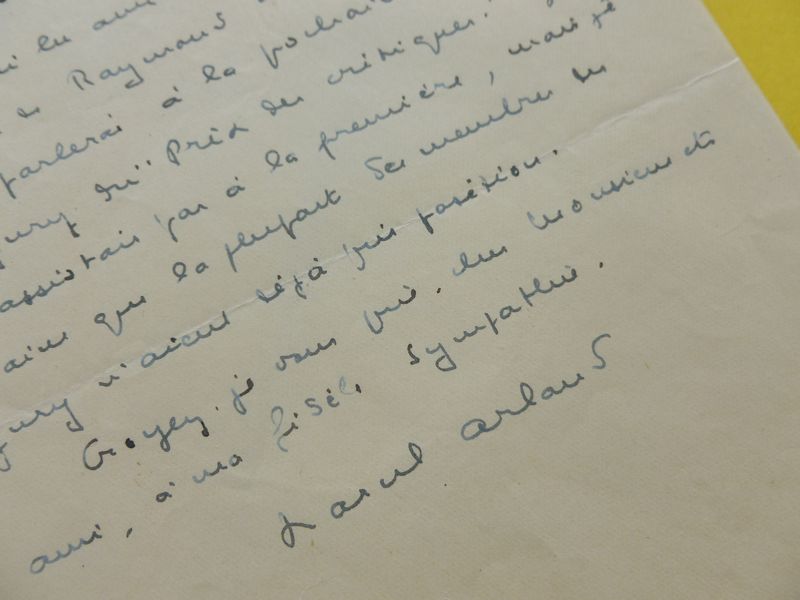 lu
Raymond
parlerai à la prochaine
jury du "Prix des critiques.
assistais pas à la première, mais je
que la plupart des membres du
jury n'aient déjà pris position.
Croyez, je vous prie, cher Monsieur et
ami, à ma fidèle sympathie.
Marcel Arland